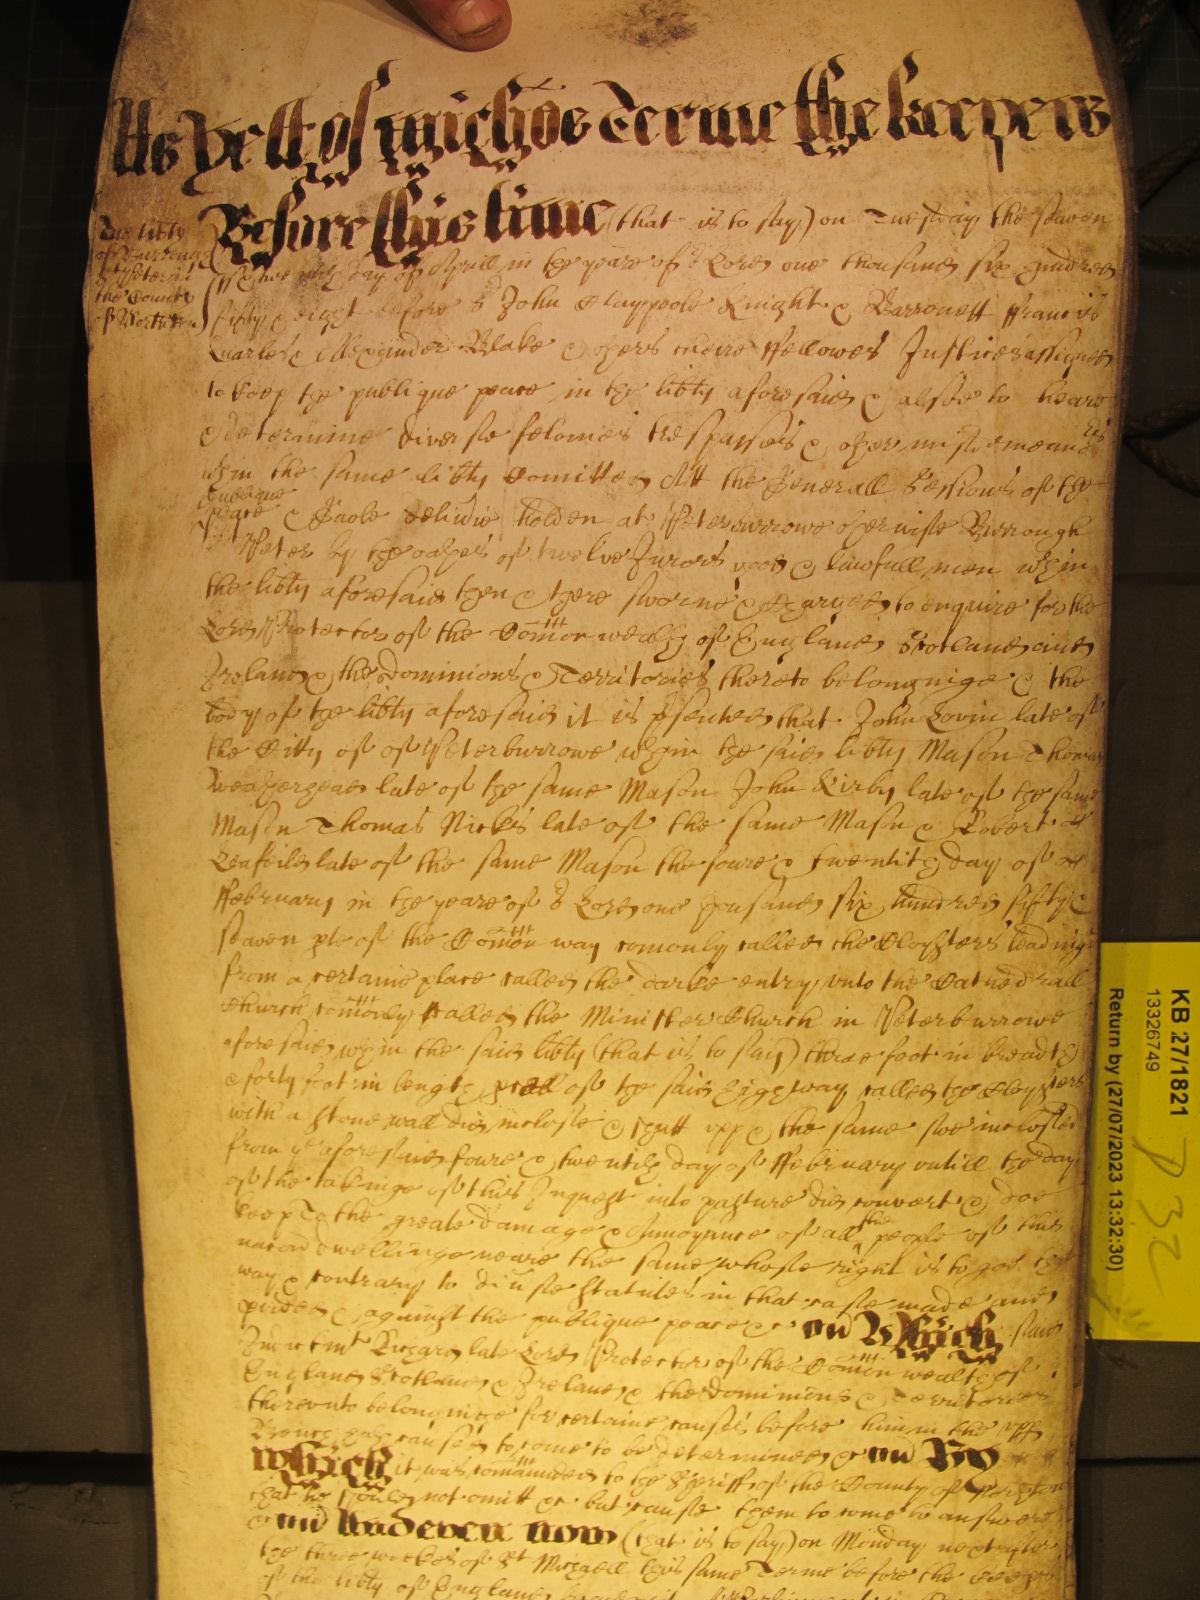 As yett of Mich'as Terme the keepers
Before this time (that is to say) on Tuesday the seaven
day of Aprill in the yeare of o'r Lord one thousand six hundred
fifty & eight before S'r John Claypoole Knight & Barronett ffrancis
Quarles Alexander Blake & others theire ffellowes Justices assigned
to keep the publique peace in the lib'ty aforesaid & alsoe to heare
& determine diverse felonies trespasses & other misdemeano'rs
w'thin the same lib'ty Comitted Att the Generall Sessions of the
publique
peace & Gaole deliu'ie holden at Peterburrowe otherwise Burrough
Peter by the oathes of twelve Jurors good & lawfull men w'thin
the lib'ty aforesaid then & there sworne & charged to enquire for the
Lord Protector of the Com'on wealth of England Scotland and
Ireland & the Dominions & Territories thereto belonginge & the
body of the lib'ty aforesaid it is p'sented that John Lovin late of
the City of of Peterburrowe w'thin the said lib'ty Mason Thomas
Weathergead late of the same Mason John Kirby late of the same
Mason Thomas Nicks late of the same Mason & Robert
late of the same Mason the foure & twentith day of
ffebruary in the yeare of o'r Lord one thousand six hundred fifty &
seaven p'te of the Com'on way comonly called the Cloysters leading
from a certaine place called the darke entry unto the Cathedrall
Church com'only called the Minister Church in Peterburrowe
aforesaid w'thin the said lib'ty (that is to say) three foot in breadth
& forty foot in length p'cell of the said highway called the Cloysters
with a stone wall did inclose & shutt upp & the same soe inclosed
from y'e aforesaid foure & twentith day of ffebruary untill the day
of the takinge of this Inquest into pasture did convert & doe
keep To the greate damage & Annoyance of all the people of this
nac'on dwellinge neare the same whose right is to goe that
way & contrary to diu'se statutes in that case made and
p'vided & against the publique peace &c And Which said
Indictm't Richard late Lord Protector of the Com'on wealth of
England Scotland & Ireland & the Dominions & Territories
thereunto belonginge for certaine causes before him in the upp'
Bench hath caused to come to be determined &c And By
Which it was comaunded to the Sheriff of the County of North'ton
that he should not omitt &c but cause them to come to answere
&c And And even now (that is to say) on Monday next after
the three weekes of S't Michaell this same Terme before the keepers
of the lib'ty of England
The lib'ty
of Burrough
S't Peter in
the County
of North'ton
KB 27/1821
13326749
Return by (27/07/2023 13:32:30)